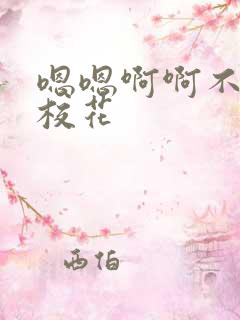 嗯嗯啊啊不
校花
西伯